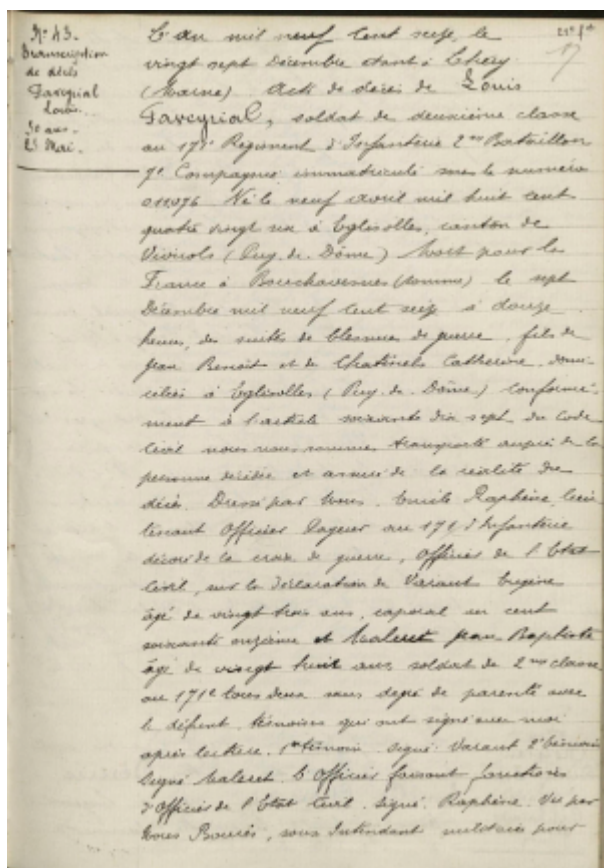 N° 43.
Transcription
de décès
Faveyrial
Louis.
30 ans.
23 Mai.
L'an mil neuf cent seize, le
vingt sept Décembre étant à
(Marne) Acte de décès de Louis
Faveyrial, soldat de deuxième classe
au 171e Régiment d'Infanterie 2me Bataillon
7e Compagnie immatriculé sous le numéro
011076 Né le neuf avril mil huit cent
quatre vingt six à Eglisolles, canton de
Viverols (Puy-de-Dôme) Mort pour la
France à Bouchavesnes (Somme) le sept
Décembre mil neuf cent seize à douze
heures, des suites de blessures de guerre, fils de
Jean Benoit et de Catherine, domi-
ciliés à Eglisolles (Puy-de-Dôme) conformé-
ment à l'article soixante dix sept du Code
Civil nous nous sommes transporté auprès de la
personne décédée et assuré de la réalité du
décès. Dressé par Nous, Emile Raphène, lieu
tenant Officier Payeur au 171e d'Infanterie
décoré de la croix de guerre, Officier de l'Etat
Civil, sur la déclaration de Varaut Eugène
âgé de vingt trois ans, caporal au cent
soixante onzième et Jean Baptiste
âgé de vingt huit ans soldat de 2me classe
au 171e tous deux sans degré de parenté avec
le défunt, témoins qui ont signé avec moi
après lecture. 1er témoin signé: Varaut 2e témoin
signé L'Officier faisant fonctions
d'Officier de l'Etat Civil, signé, Raphène. Vu par
Nous sous Intendant militaire pour